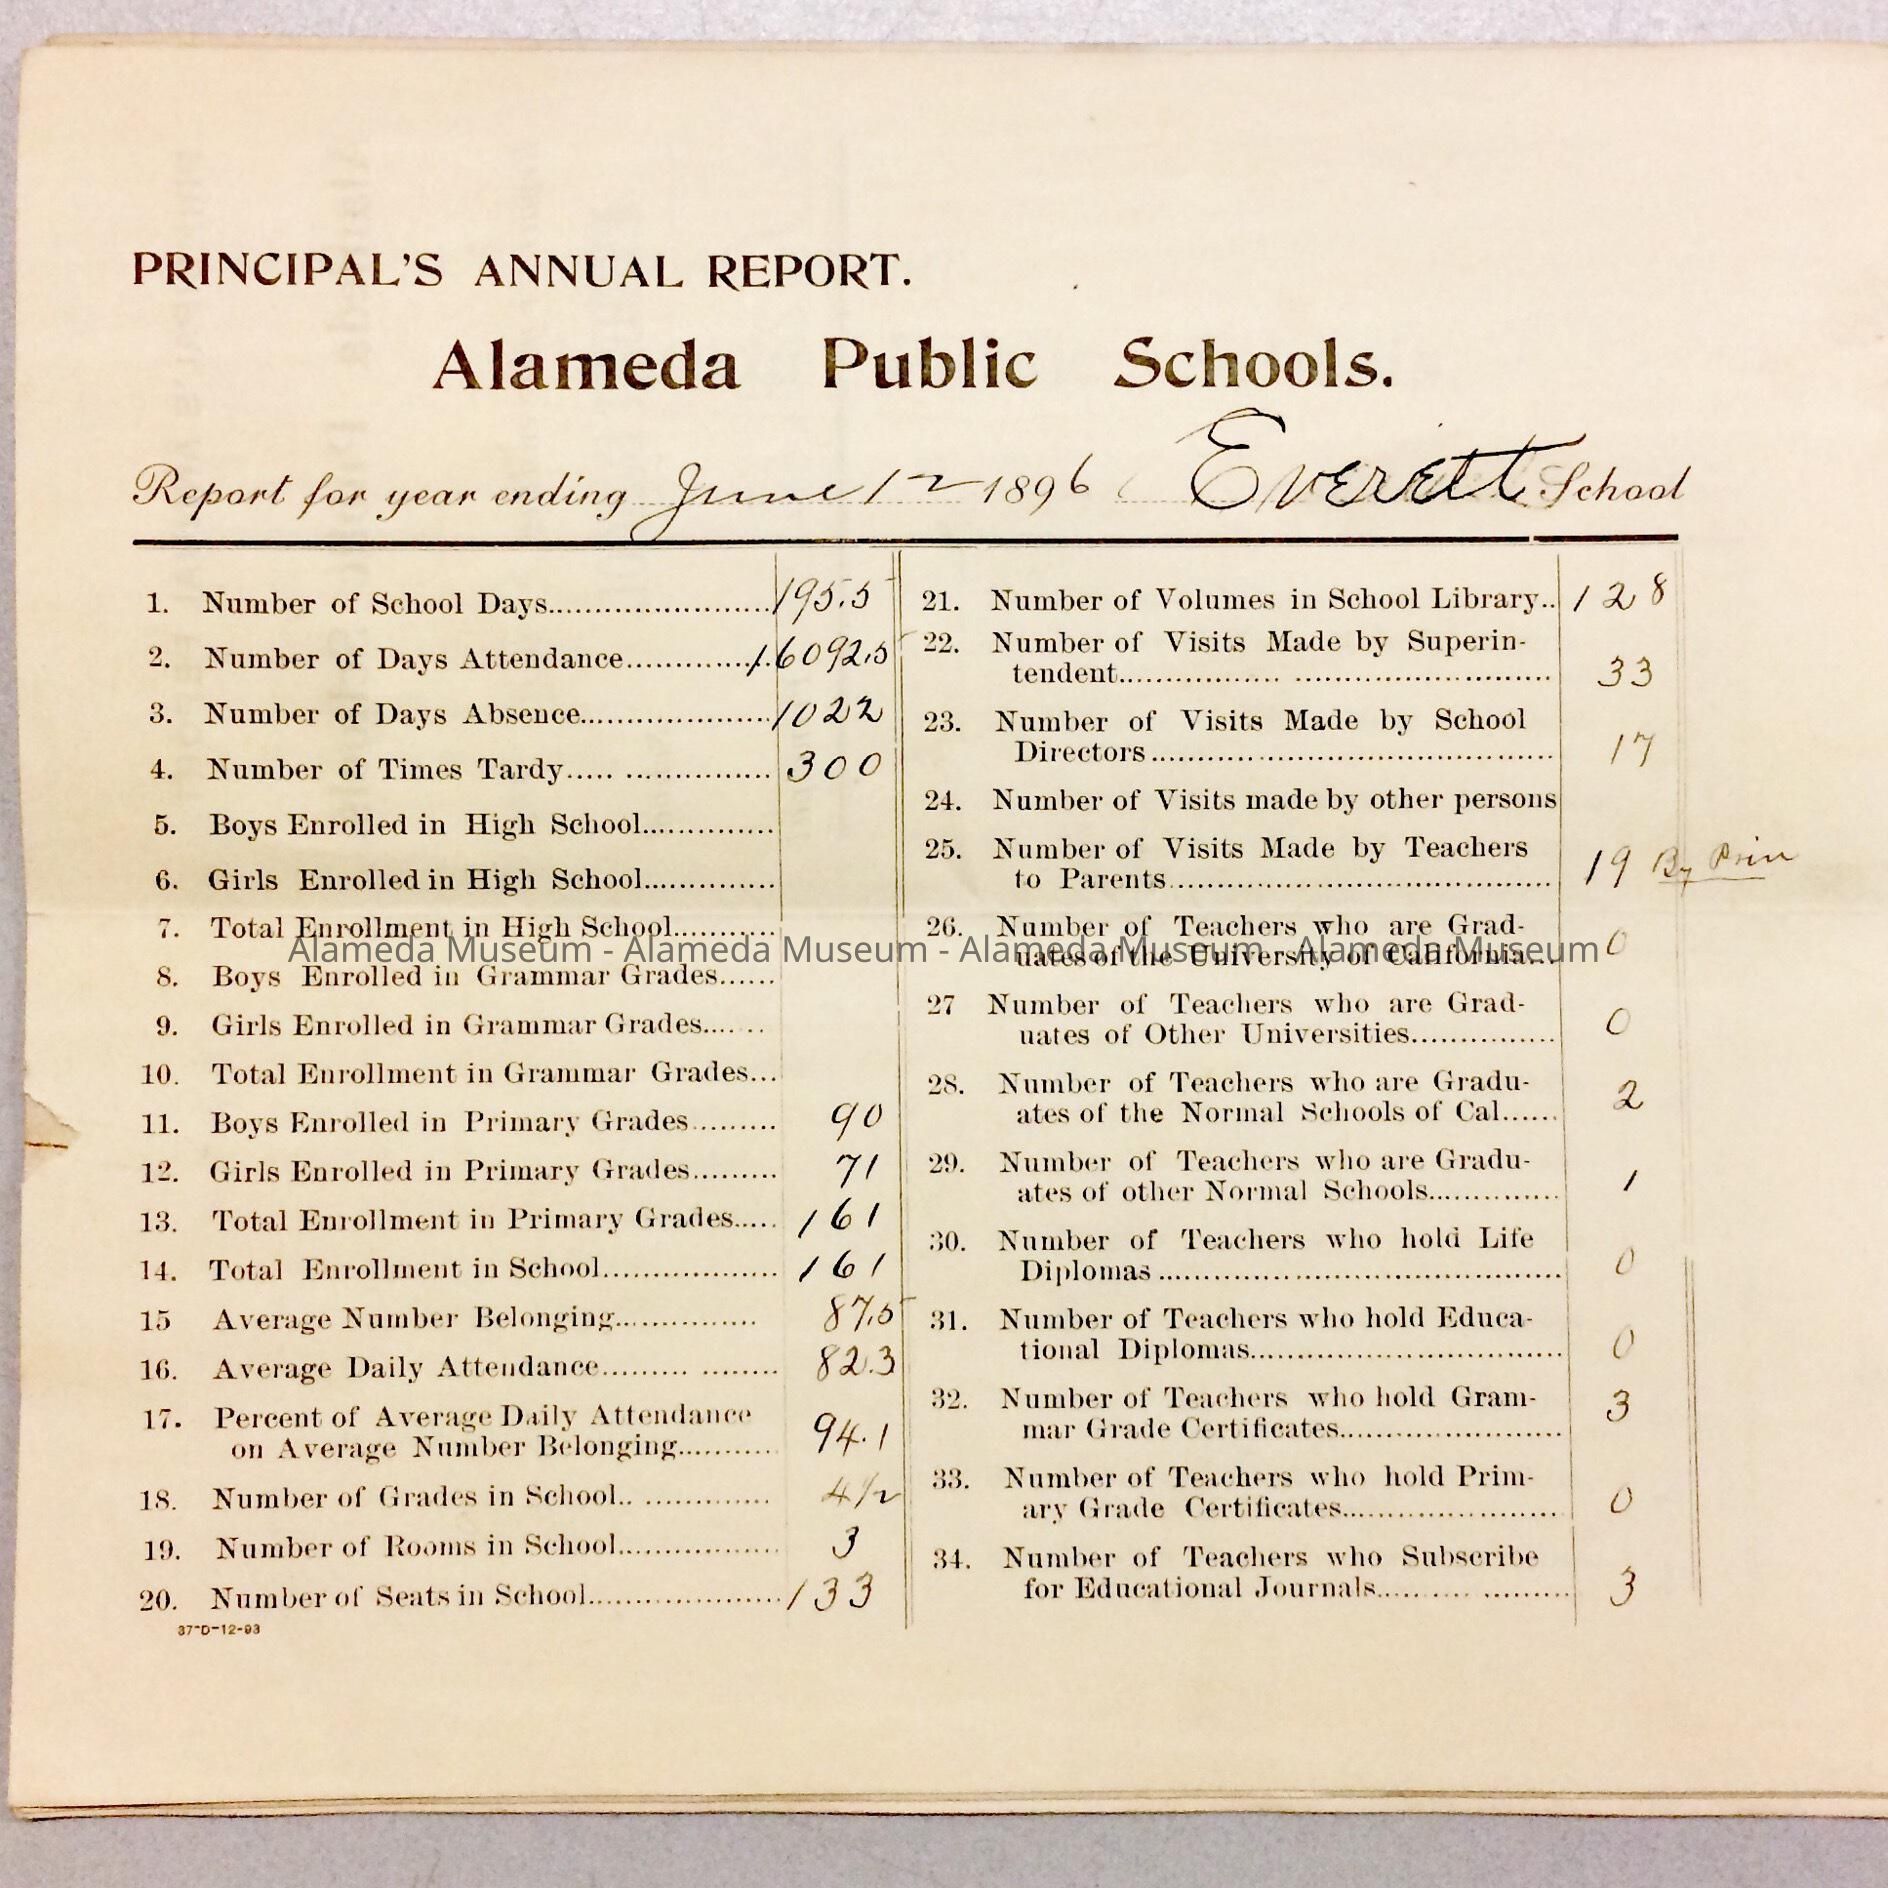 PRINCIPAL'S ANNUAL REPORT.
Alameda Public Schools.
Report for year ending June 12 1896 Everett School
1. Number of School Days 195.5
2. Number of Days Attendance 16092.5
3. Number of Days Absence 1022
4. Number of Times Tardy 300
5. Boys Enrolled in High School
6. Girls Enrolled in High School
7. Total Enrollment in High School
8. Boys Enrolled in Grammar Grades
9. Girls Enrolled in Grammar Grades
10. Total Enrollment in Grammar Grades
11. Boys Enrolled in Primary Grades 90
12. Girls Enrolled in Primary Grades 71
13. Total Enrollment in Primary Grades 161
14. Total Enrollment in School 161
15 Average Number Belonging 87.5
16. Average Daily Attendance 82.3
17. Percent of Average Daily Attendance
on Average Number Belonging 94.1
18. Number of Grades in School 4 1/2
19. Number of Rooms in School 3
20. Number of Seats in School 133
37-D-12-93
21. Number of Volumes in School Library 128
22. Number of Visits Made by Superin-
tendent 33
23. Number of Visits Made by School
Directors 17
24. Number of Visits made by other persons
25. Number of Visits Made by Teachers
to Parents 19 By Prin
26. Number of Teachers who are Grad-
uates of the University of California 0
27 Number of Teachers who are Grad-
uates of Other Universities 0
28. Number of Teachers who are Gradu-
ates of the Normal Schools of Cal 2
29. Number of Teachers who are Gradu-
ates of other Normal Schools 1
30. Number of Teachers who hold Life
Diplomas 0
31. Number of Teachers who hold Educa-
tional Diplomas 0
32. Number of Teachers who hold Gram-
mar Grade Certificates 3
33. Number of Teachers who hold Prim-
ary Grade Certificates 0
34. Number of Teachers who Subscribe
for Educational Journals 3
Alameda Museum - Alameda Museum - Alameda Museum - Alameda Museum